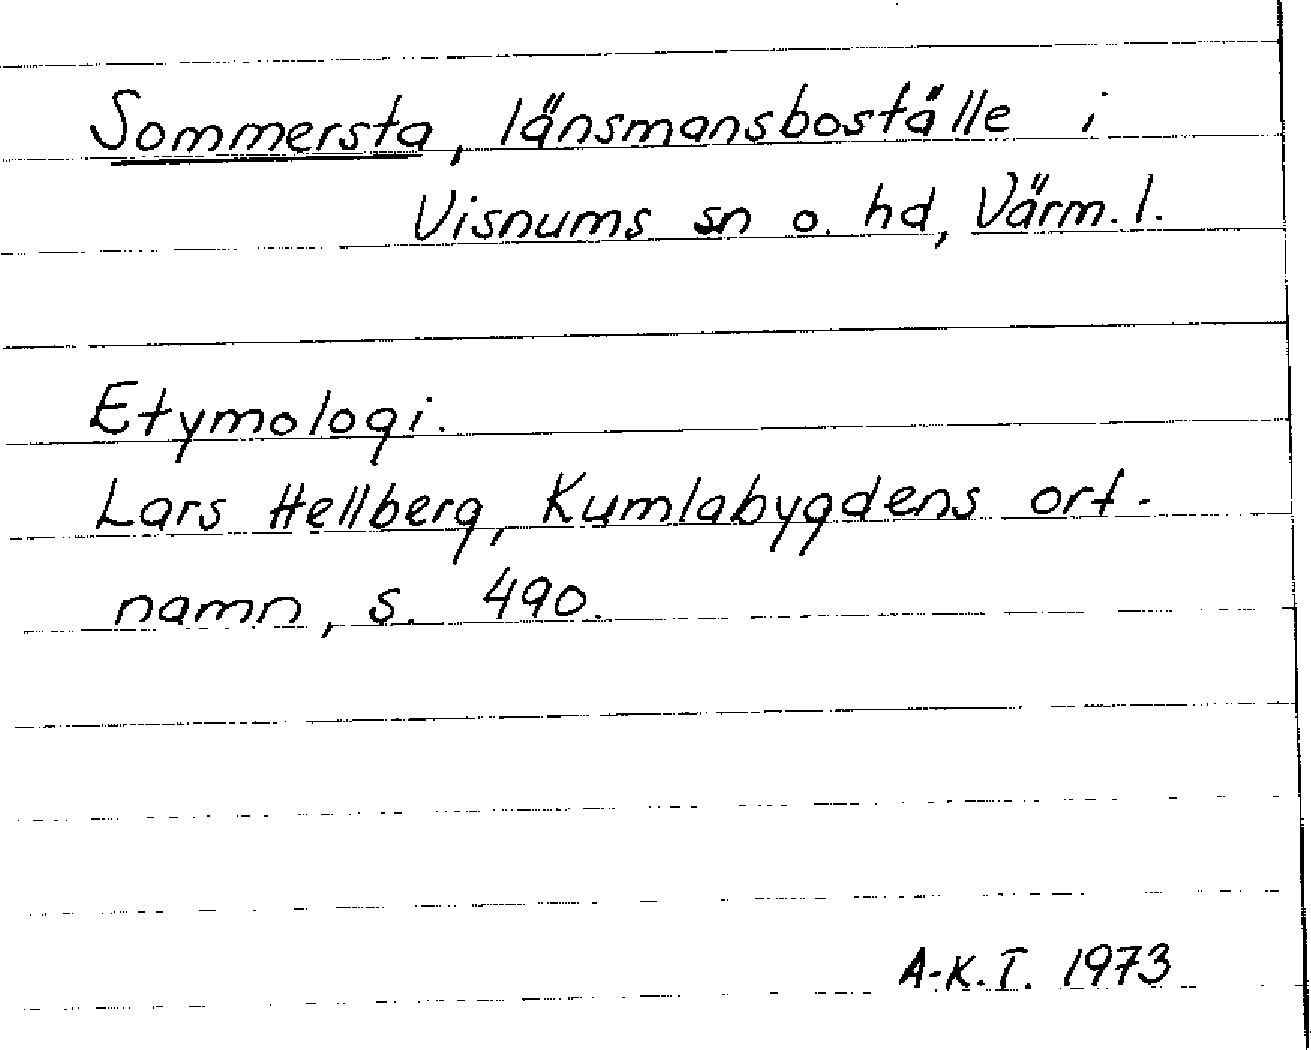 Sommersta, länsmansboställe i
Visnums sn o. hd, Värm. l.
Etymologi.
Lars Hellberg, Kumlabygdens ort-
namn, s. 490.
A-K.T. 1973